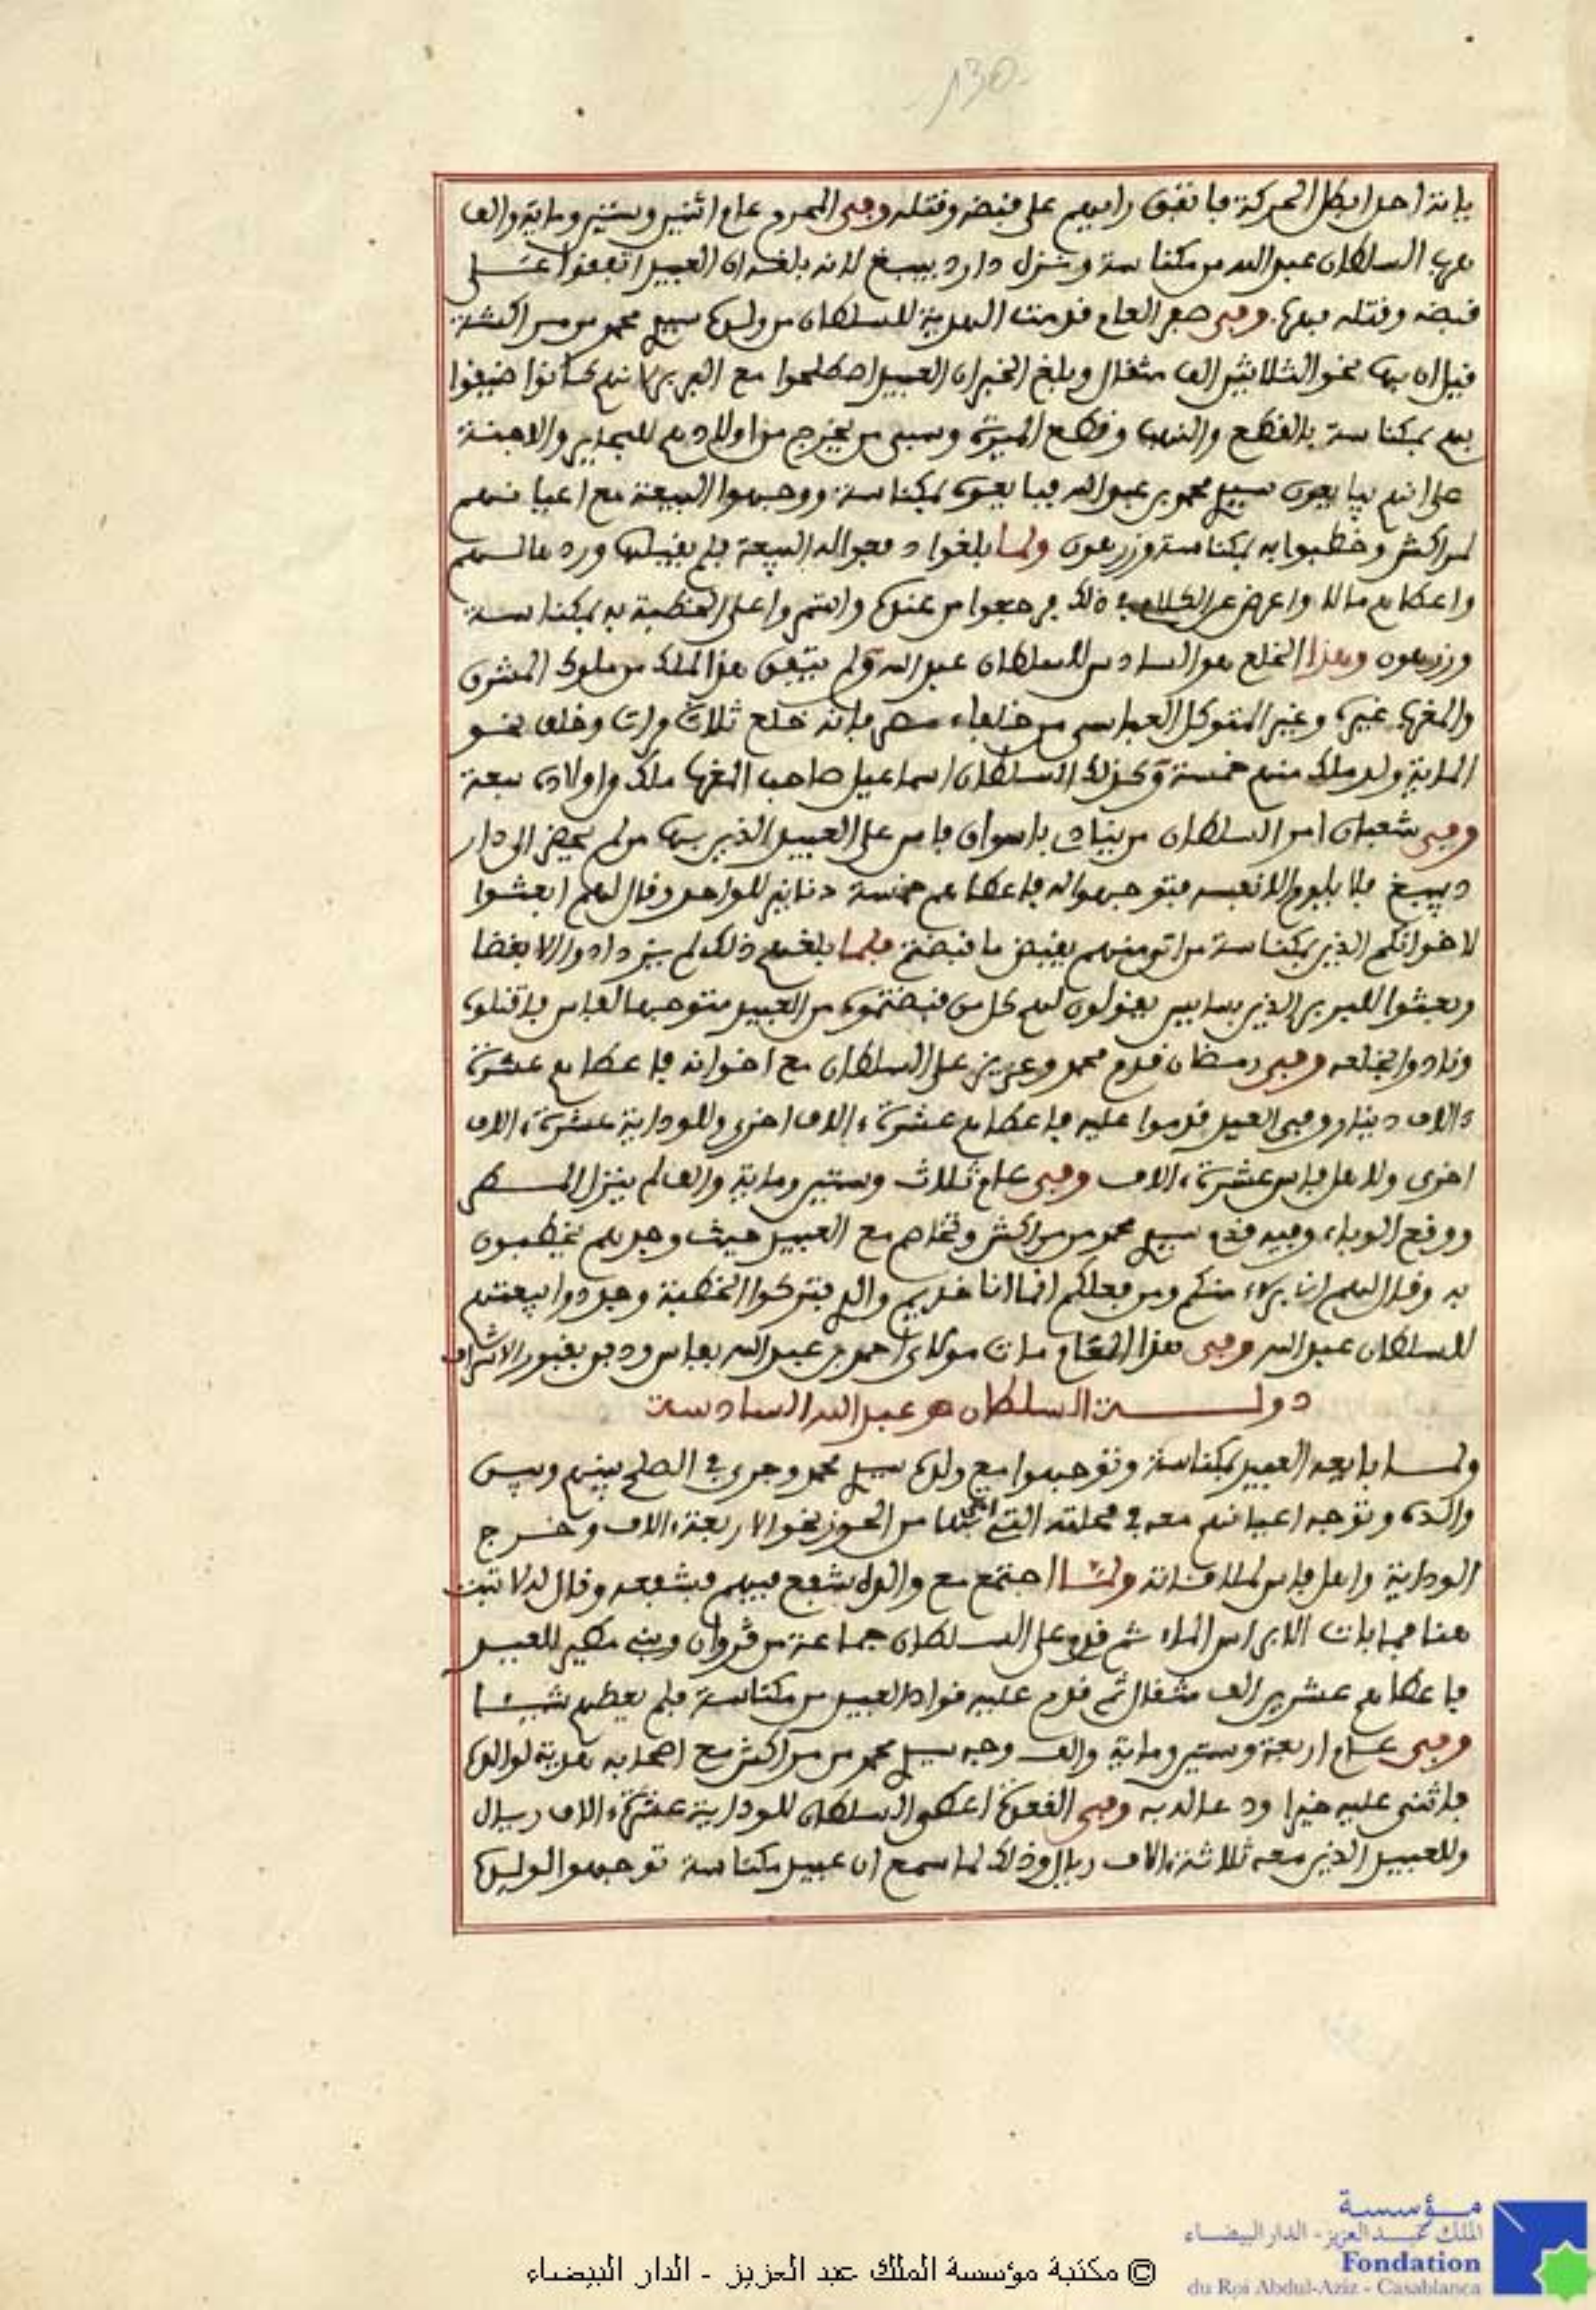 130
بانه احد ابطل الحركة فاتفق رأيهم على قبضه وقتله وفي المحرم عام اثنين وستين وماية والف
هرب السلطان عبد الله من مكناسة ونزل دار دبيبغ لانه بلغه ان العبيد اتفقوا على
قبضه وقتله فهرب وفي صفر العام قدمت الهدية للسلطان من ولده سيدي محمد من مراكشة
قيل ان بها نحو الثلاثين الف مثقال وبلغ الخبر ان العبيد اصطلحوا مع البربر لانهم كانوا ضيقوا
بهم بمكناسة بالقطع والنهب وقطع الميرة وسبي من يخرج من اولادهم للبحاير والاجنة
على انهم يبايعون سيدي محمد بن عبد الله فبايعوه بمكناسة ووجهوا البيعة مع اعيانهم
لمراكش وخطبوا به بمكناسة وزرهون ولما بلغوا دفعوا له البيعة فلم يقبلها ورد عليهم
واعطاهم مالا واعرض عن الكلام في ذلك فرجعوا من عنده واستمروا على الخطبة به بمكناسة
وزرهون وهذا الخلع هو السادس للسلطان عبد الله ولم يتفق هذا لملك من ملوك المشرق
والمغرب غيره وغير المتوكل العباسي من خلفاء مصر فانه خلع ثلاث مرات وخلف نحو
الماية ولد ملك منهم خمسة وكذلك السلطان اسماعيل صاحب المغرب ملك من اولاده سبعة
وفي شعبان امر السلطان من ينادي باسواق فاس على العبيد الذين بها من لم يحضر الى دار
دبيبغ فلا يلوم الا نفسه فتوجهوا له فاعطاهم خمسة دنانير للواحد وقال لهم ابعثوا
لاخوانكم الذين بمكناسة من اتى منهم يقبض ما قبضتم فلما بلغهم ذلك لم يزدادوا الا بغضا
وبعثوا للبربر الذين بسايس يقولون لهم كل من قبضتموه من العبيد متوجها لفاس فاقتلوه
ونادوا بخلعه وفي رمضان قدم محمد وعزيز على السلطان مع اخوانه فاعطاهم عشرة
ءالاف دينار وفي العيد قدموا عليه فاعطاهم عشرة ءالاف اخرى وللودايا عشرة ءالاف
اخرى ولاهل فاس عشرة ءالاف وفي عام ثلاث وستين وماية والف لم ينزل المطر
ووقع الوباء وفيه قدم سيدي محمد من مراكش وتخاصم مع العبيد حيث وجدهم يخطبون
به وقال لهم انا بريء منكم ومن فعلكم انما انا خديم والدي فتركوا الخطبة وجددوا بيعتهم
للسلطان عبد الله وفي هذا العام مات مولاي احمد بن عبد الله بفاس ودفن بقبور الاشراف
دولـــة السلطان مو عبد الله السادسة
ولما بايعه العبيد بمكناسة وتوجهوا مع ولده سيدي محمد وجرى في الصلح بينهم وبين
والده وتوجه اعيانهم معه في محلته التي اتى بها من الحوز نحو الاربعة ءالاف وخرج
الوداية واهل فاس لملاقاته ولما اجتمع مع والده شفع فيهم فشفعه وقال له لا تبت
هنا فما بات الا براس الماء ثم قدم على السلطان جماعة من قروان وبني مطير للعبيد
فاعطاهم عشرين الف مثقال ثم قدم عليه قواد العبيد من مكناسة فلم يعطهم شيئا
وفي عام اربعة وستين وماية والف وجه سيدي محمد من مراكش مع اصحابه هدية لوالده
فاثنى عليه خيرا ودعا له به وفي القعدة اعطى السلطان للوداية عشرة ءالاف ريال
وللعبيد الذين معه ثلاثة ءالاف ريال وذلك لما سمع ان عبيد مكناسة توجهوا لولده
© مكتبة مؤسسة الملك عبد العزيز - الدار البيضاء
مؤسسة
الملك عبد العزيز - الدار البيضاء
Fondation
du Roi Abdul-Aziz - Casablanca